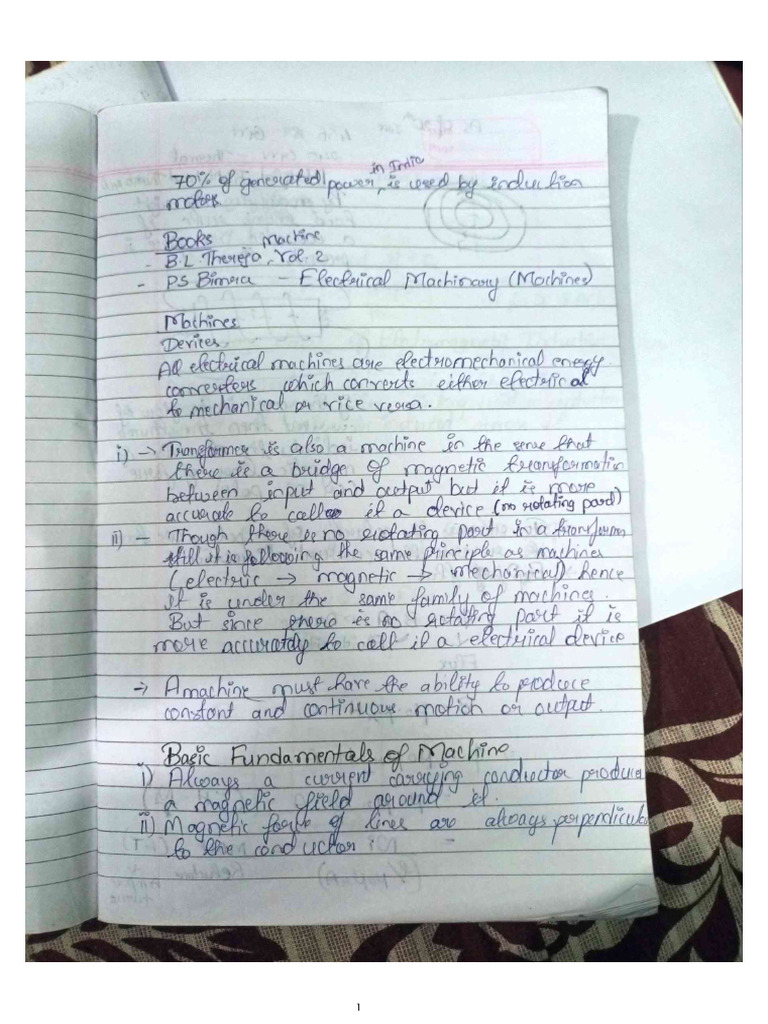 70% of generated power, in India is used by induction
motors
Books
Machine
- B.L. Thereja, Vol. 2
- P.S Bimra - Electrical Machinary (Machines)
Machines
Devices
All electrical machines are electromechanical energy
convertors which converts either electrical
to mechanical or vice versa.
i) → Transformer is also a machine in the sense that
there is a bridge of magnetic transformation
between input and output but it is more
accurate to call it a device (no rotating part)
ii) - Though there is no rotating part in a transform
still it is following the same principle as machines
(electric → magnetic → mechanical) hence
it is under the same family of machines.
But since there is no rotating part it is
more accurately to call it a electrical device
→ A machine must have the ability to produce
constant and continuous motion or output.
Basic Fundamentals of Machine
i) Always a current carrying conductor produces
a magnetic field around it.
ii) Magnetic force of lines are always perpendicular
to the conductor
1